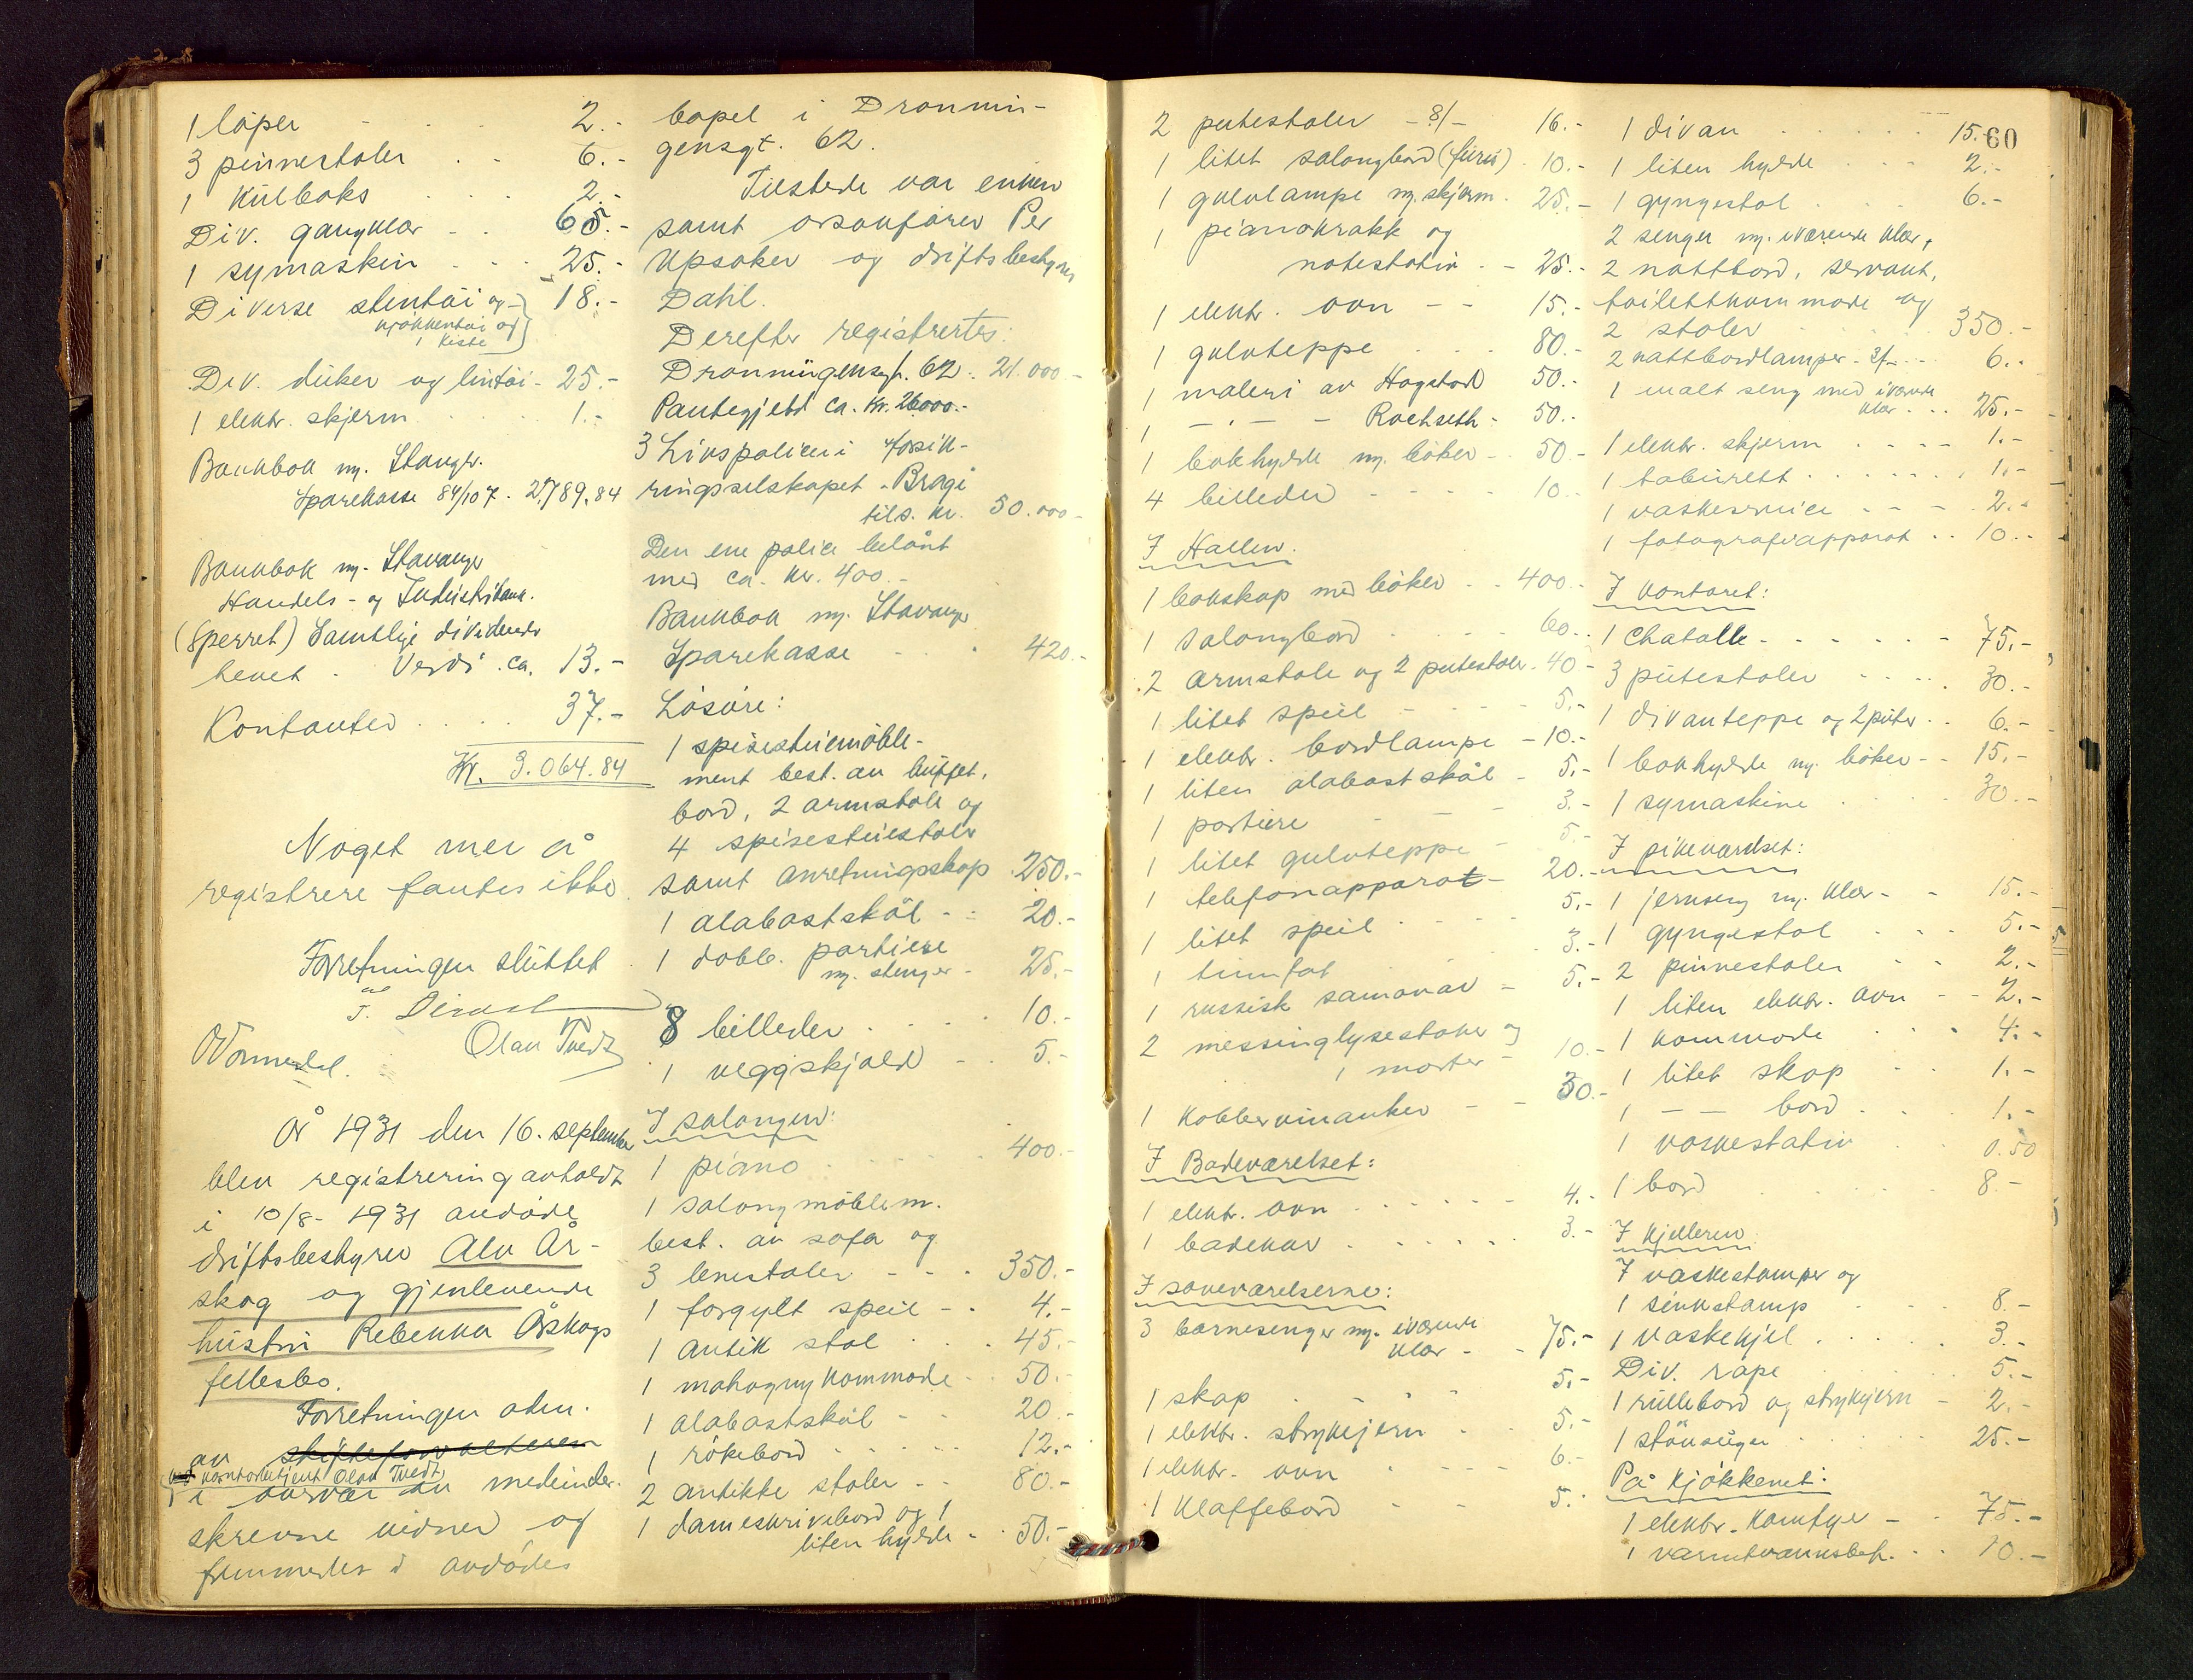 1 löper - - 2.-
3 pinnestoler - - 6.-
1 Kulboks - - - 2.-
Div. gangklær - - 65.-
1 symaskin - - - 25.-
Diverse stentöi og } 18.-
kjökkentöi og
1 kiste
Div. duker og lintöi - 25.-
1 elektr. skjerm - - 1.-
Bankbok m. Stavgr.
Sparekasse 84/107 - 2.789.84
Bankbok m. Stavanger
Handels- og Industribank.
(Sperret) Samtlige dividender
hevet - Verdi ca. 13.-
Kontanter . . . . 37.-
Kr. 3.064.84
Noget mer å
registrere fantes ikke.
Forretningen sluttet
Olav Tvedt
År 1931 den 16. september
blev registrering avholdt
i 10/8-1931 avdöde
driftsbestyrer Alv År-
skog og gjenlevende
hustru Rebekka Årskogs
fellesbo.
Forretningen adm.
av skifteforvalteren
kontorbetjent Olav Tvedt
i nærvær av medunder-
skrevne vidner og
fremmedes i avdödes
bopel i Dronnin-
gensgt. 62.
Tilstede var enken
samt orsakförer Per
Upsaker og driftsbestyrer
Dahl.
Derefter registrertes:
Dronningensgt. 62: 21.000.-
Pantegjeld ca. Kr. 26000.-
3 Livspoliser i forsik-
ringsselskapet "Bragi
tils. kr. 50.000-
Den ene police belånt
med ca. kr. 400.-
Bankbok m. Stavanger
Sparekasse - - - 420.-
Lösöre:
1 spisestuemöble-
ment best. av buffet,
bord, 2 armstole og
4 spisestuestoler
samt anretningsskap 250.-
1 alabastskål - - 20.-
1 dobb. portiere
m. stenger - 25.-
8 billeder . . . . 10.-
1 veggskjold - - 5.-
I salongen:
1 piano . . . . . 400.-
1 salongmöblem.
best. av sofa og
3 lenestoler - - - 350.-
1 forgylt speil - - 4.-
1 antik stol . . 45.-
1 mahogny kommode - - 50.-
1 alabastskål - - 20.-
1 rökebord - - - - - 12.-
2 antikke stoler - - 80.-
1 dameskrivebord og 1
liten hylde - - 50.-
2 putestoler - 8/- 16.-
1 litet salongbord (furu) . 10.-
1 gulvlampe m. skjerm . 25.-
1 pianokrakk og
notestativ - - 25.-
1 elektr. ovn - - 15.-
1 gulvteppe . . . 80.-
1 maleri av Hagstad 50.-
1 - " - - Rachseth - 50.-
1 bokhylde m. böker - - 50.-
4 billeder - - - - 10.-
I Hallen.
1 bokskap med böker - - 400.-
1 salongbord . . . . 60.-
2 armstole og 2 putestoler. 40.-
1 litet speil - - - - 5.-
1 elektr. bordlampe - 10.-
1 liten alabastskål - 5.-
1 portiere - - - 3.-
1 litet gulvteppe - 5.-
1 telefonapparat - 20.-
1 litet speil . . . . 5.-
1 tinnfat . 3.-
1 russisk samovar - 5.-
2 messinglysestaker og
1 morter - 10.-
1 Kobbervinanker - - 30.-
I Badeværelset:
1 elektr. ovn . . . . 4.-
1 badekar . . . . . 3.-
I soveværelserne:
3 barnesenger m. iværende
klær - - 75.-
1 skap . - - - 5.-
1 elektr. strykejern . . 5.-
1 elektr. ovn . - - - 6.-
1 Klaffebord - - 5.-
60
1 divan . . . . . . 15.-
1 liten hylde . . . 2.-
1 gyngestol . . . 6.-
2 senger m. iværende klær,
2 nattbord, servant,
toilettkommode og
2 stoler . . . . . 350.-
2 nattbordlamper - 3/- - - 6.-
1 malt seng med iværende
klær . . . 25.-
1 elektr. skjerm . . . . 1.-
1 taburett . . . . . . 1.-
1 vaskeservice - - - 2.-
1 fotografiapparat . . 10.-
I Kontoret:
1 Chatolle - - - - - - 75.-
3 putestoler - - - - 30.-
1 divanteppe og 2 puter - - 6.-
1 bokhylde m. böker - - 15.-
1 symaskine . . . . 30.-
I pikeværelset:
1 jernseng m. klær - - 15.-
1 gyngestol - - - 5.-
2 pinnestoler - - - 2.-
1 liten elektr. ovn - - 2.-
1 kommode . . . 4.-
1 litet skap - - 1.-
1 - - bord . . . 1.-
1 vaskestativ . . 0.50
1 bord . . . . . 8.-
I Kjelleren
7 vaskestamper og
1 sinkstamp . . . 8.-
1 vaskekjel . . . . 3.-
Div. rape . . . . 5.-
1 rullebord og strykejern - 2.-
1 stövsuger . . . . . 25.-
På Kjökkenet:
1 elektr. Komfyr - - 75.-
1 varmtvannsbeh. - - 10.-